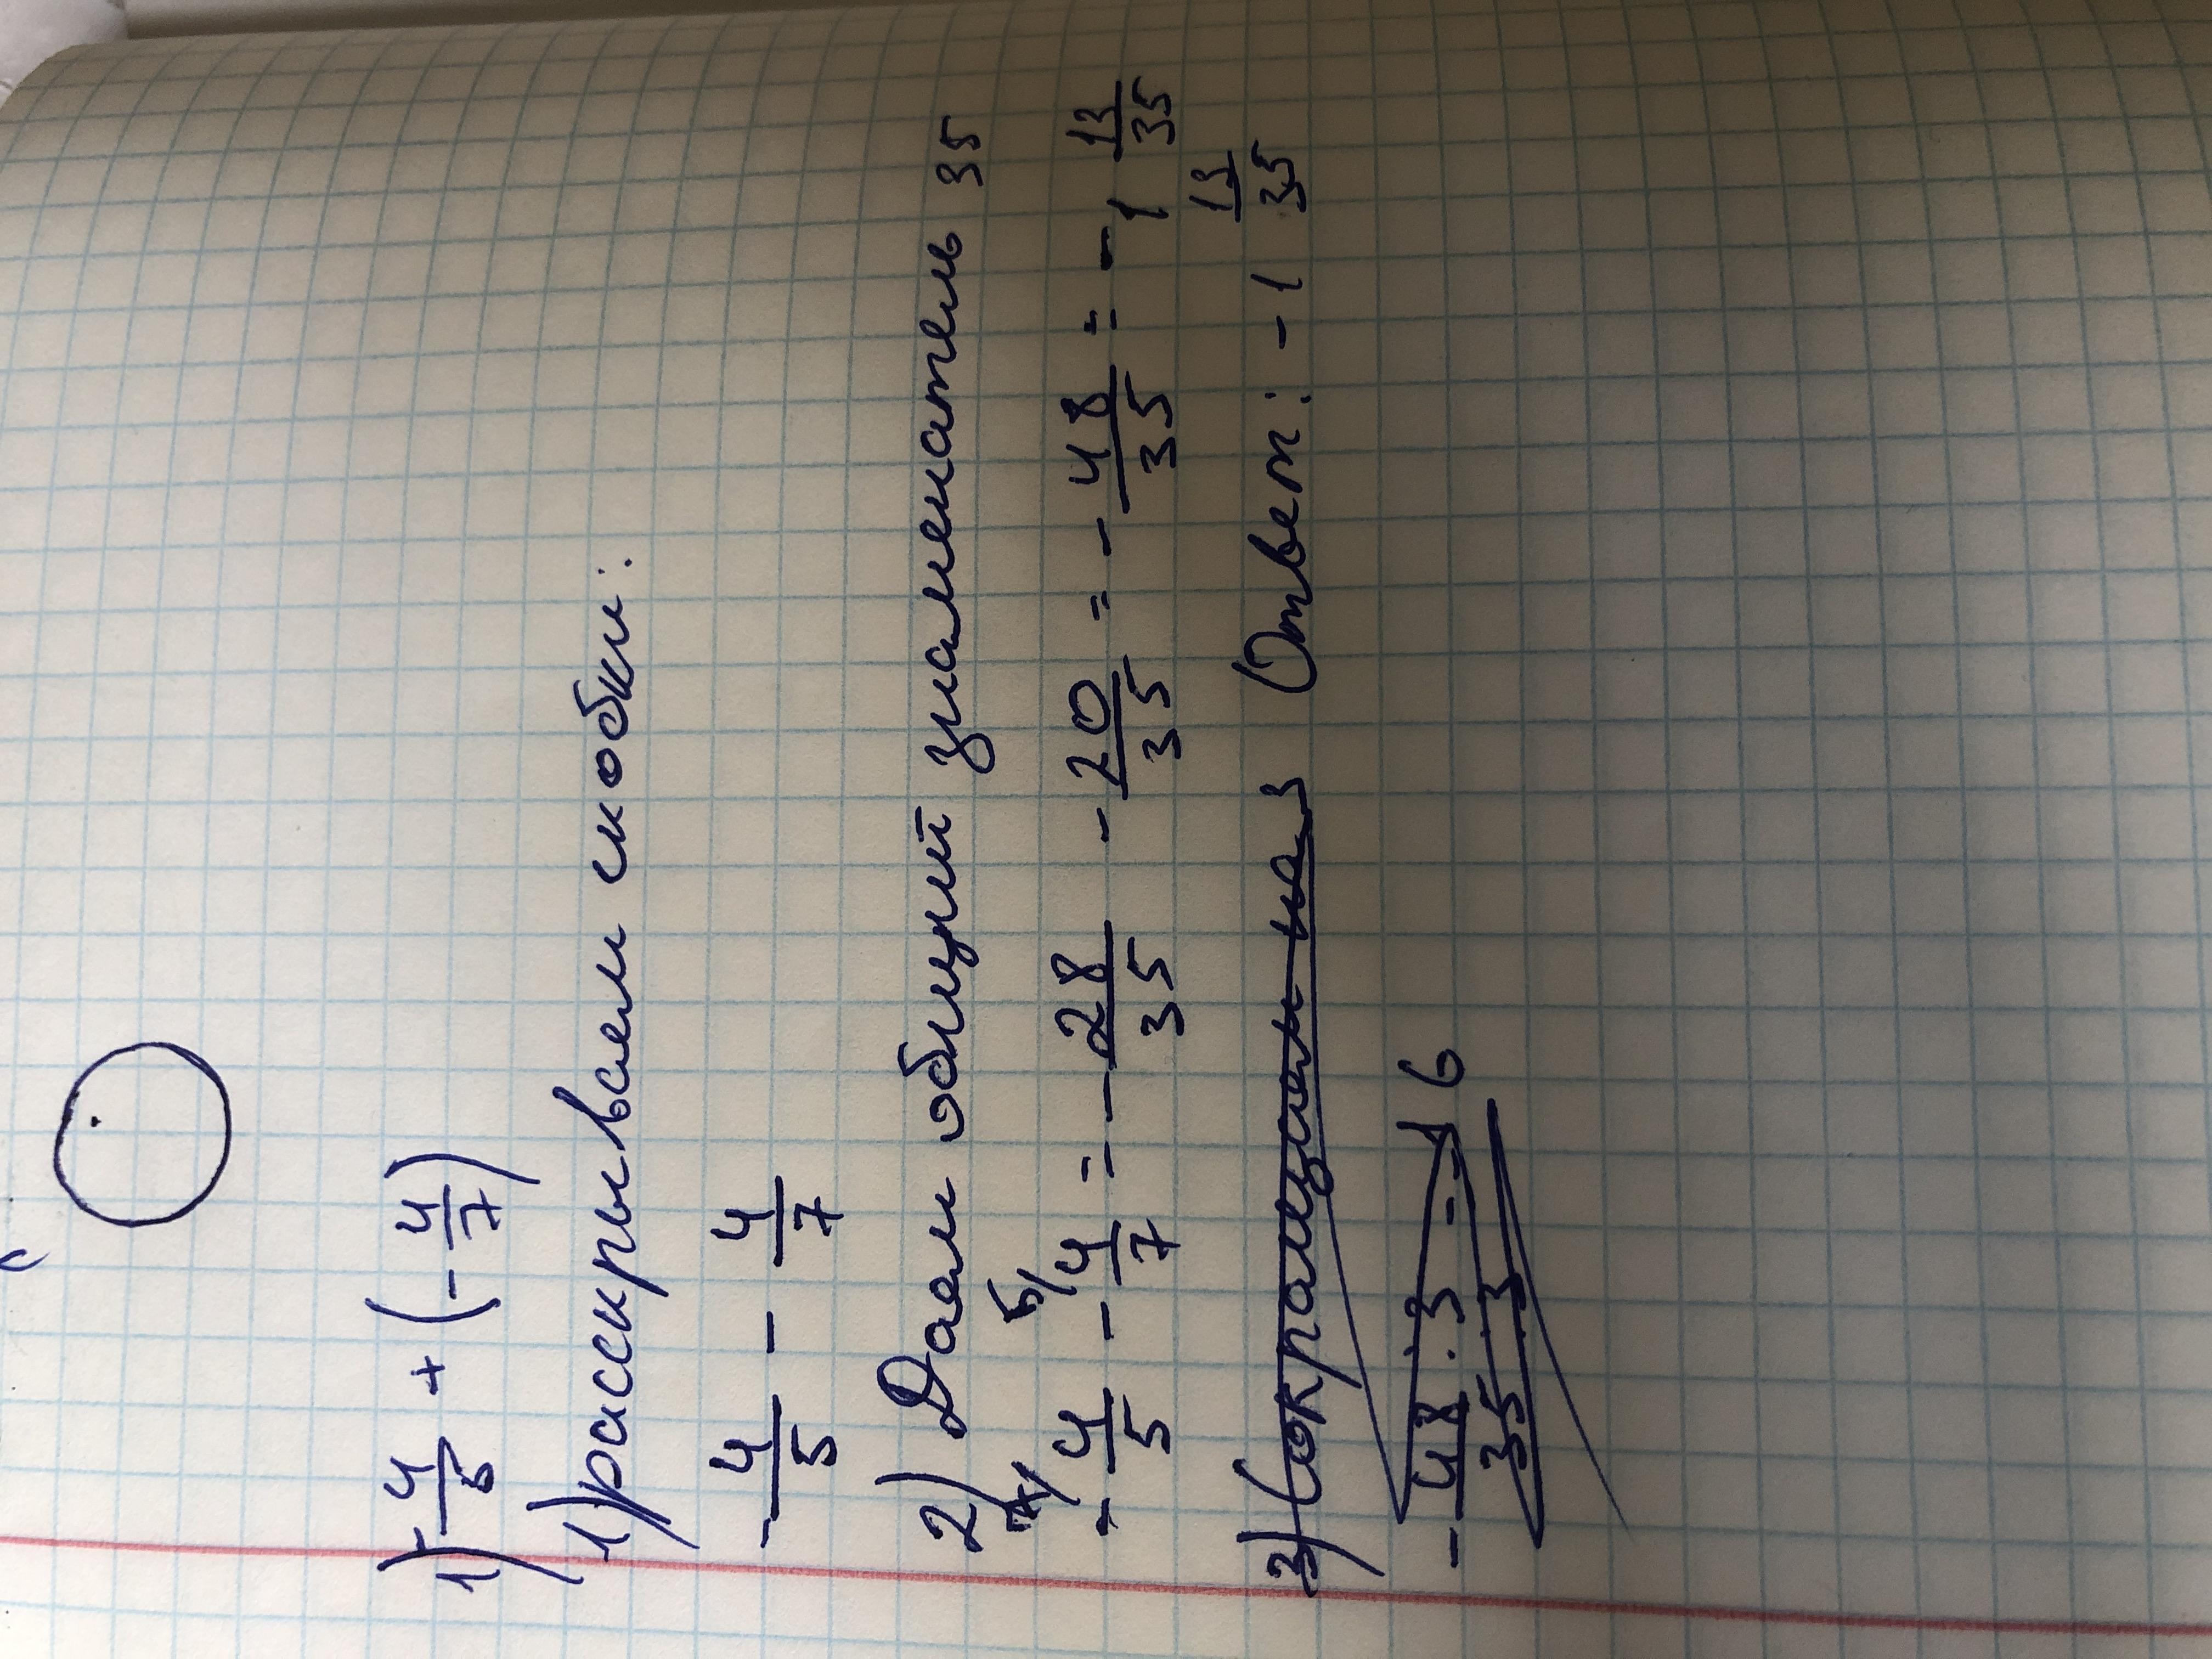 1) -4/5 + (-4/7)
1) расскрываем скобки:
-4/5 - 4/7
2) Даем общий знаменатель 35
7/ 5/
-4/5 - 4/7 = -28/35 - 20/35 = -48/35 = -1 13/35
3) Сокращаем на 3 Ответ: -1 13/35
-48:3 16
35:3